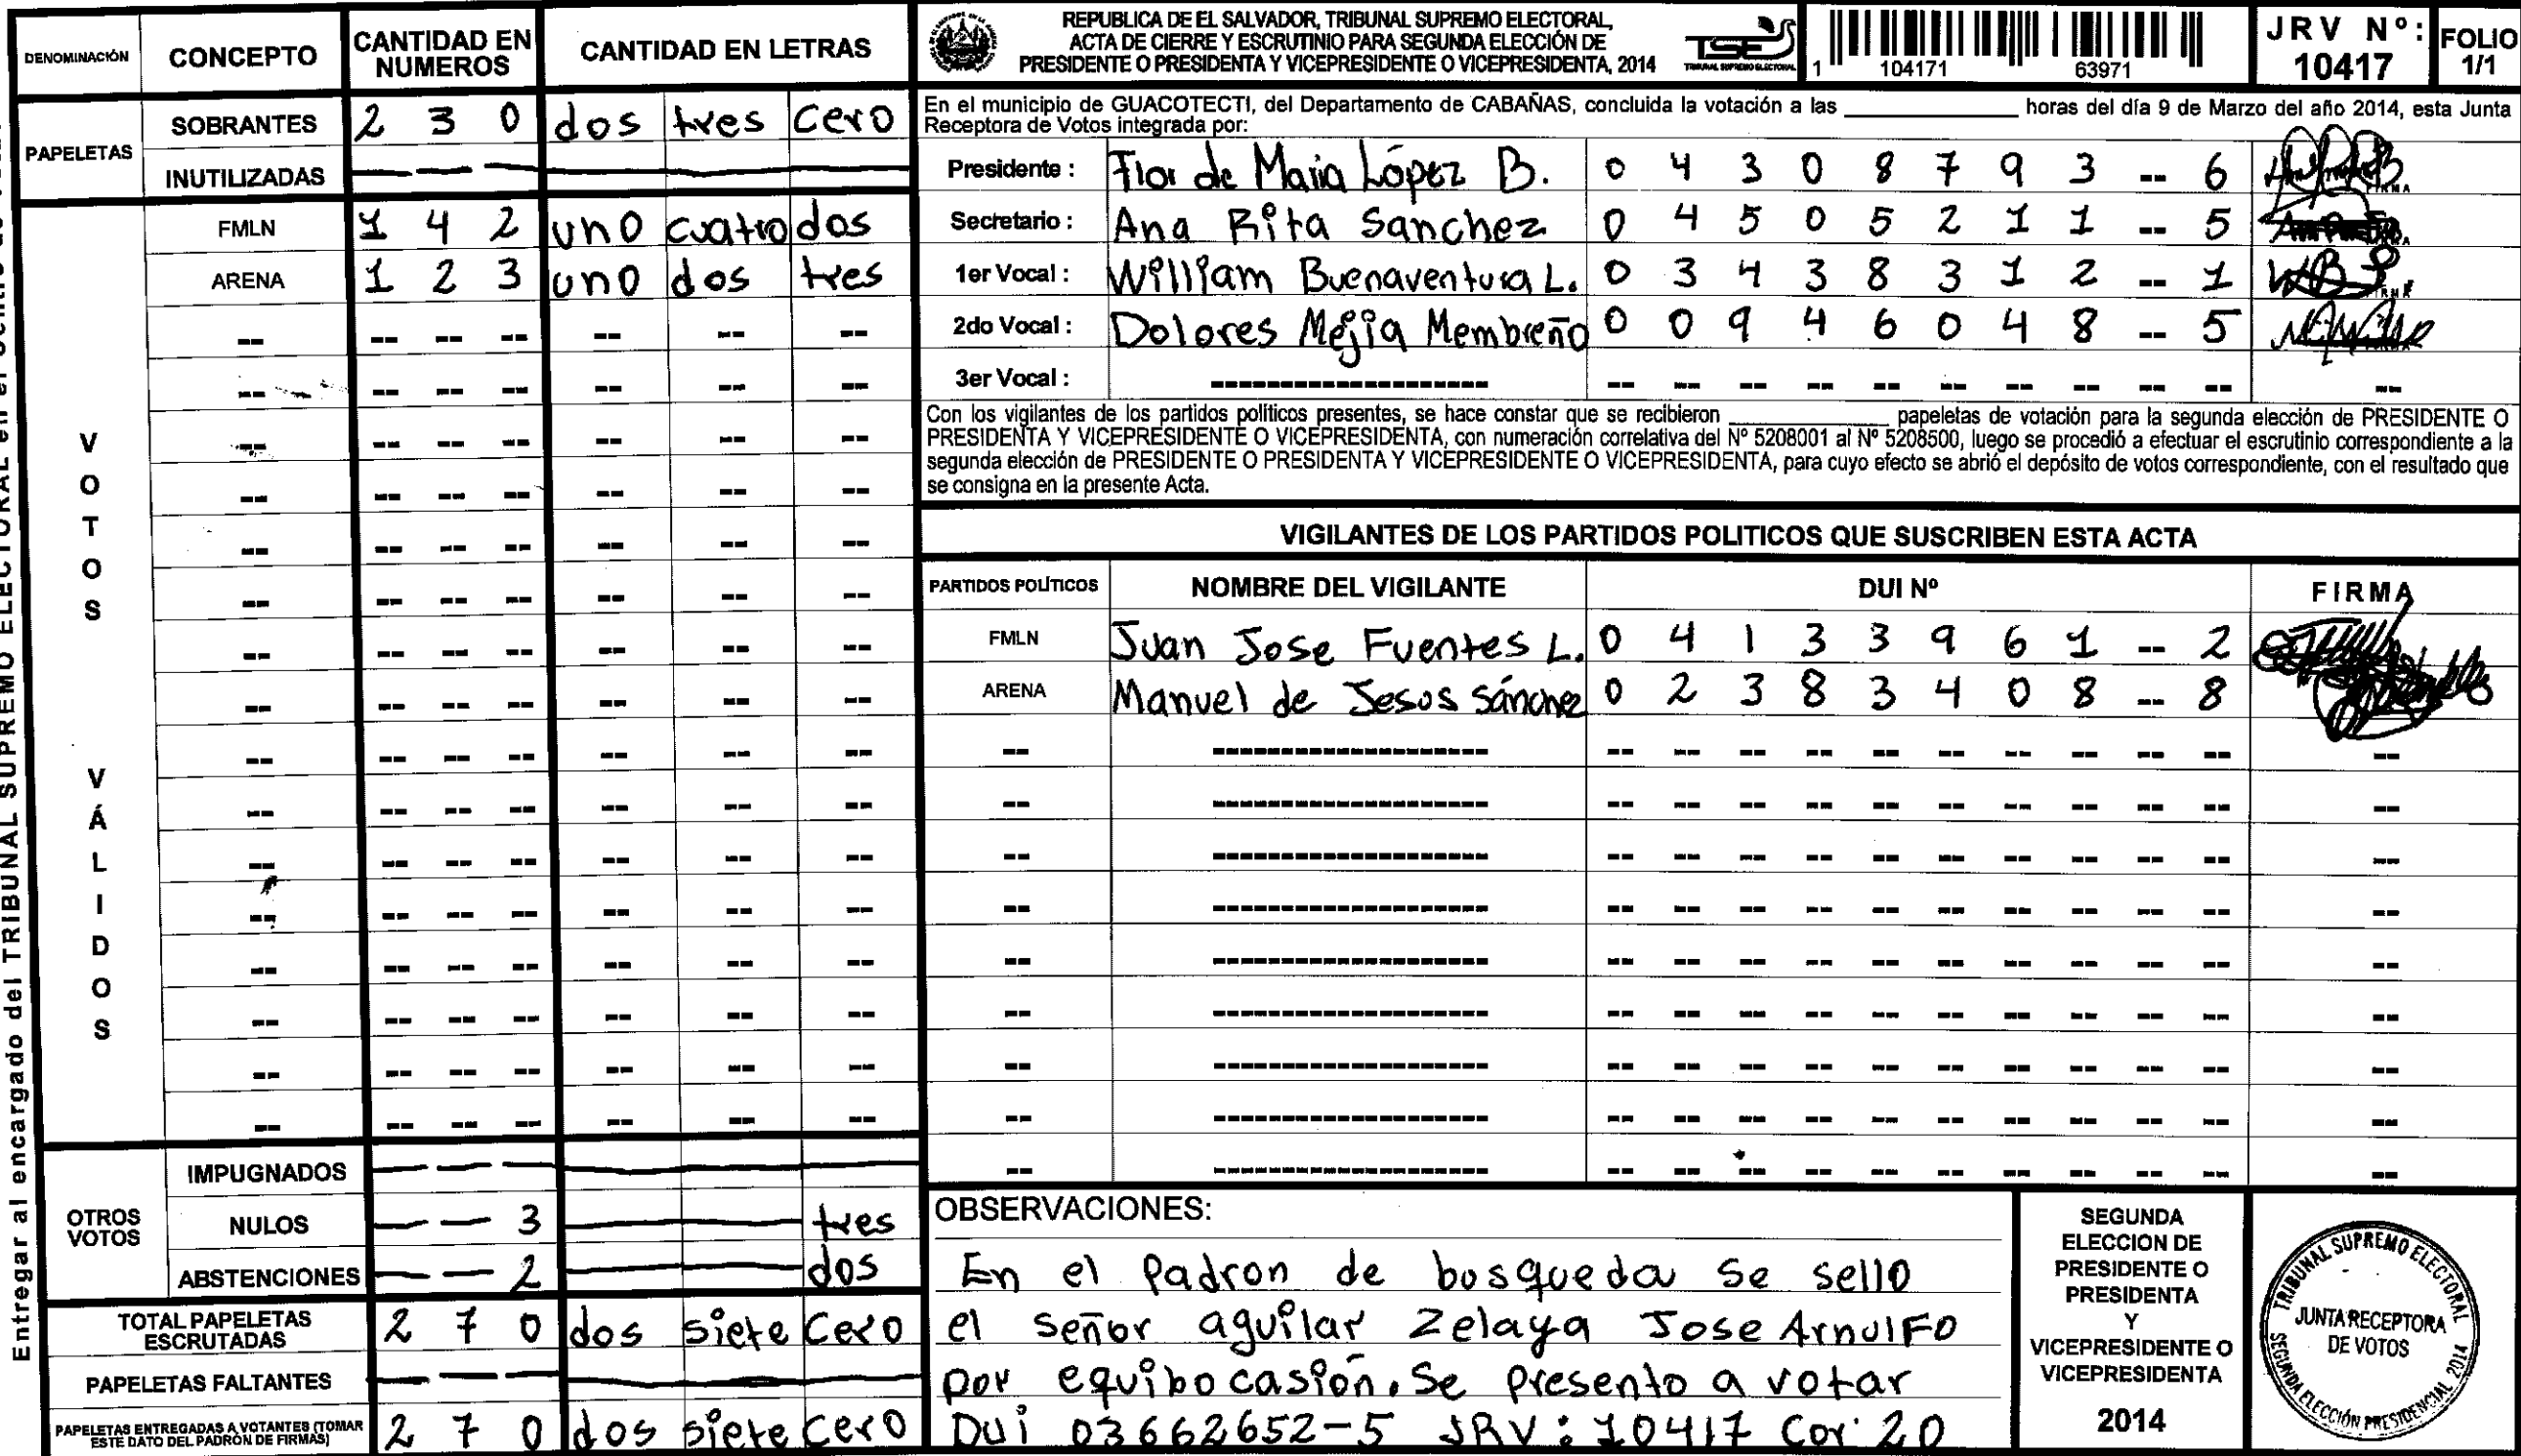 Entregar al encargado del TRIBUNAL SUPREMO ELECTORAL en el
DENOMINACIÓN CONCEPTO CANTIDAD EN NUMEROS CANTIDAD EN LETRAS
PAPELETAS
SOBRANTES 2 3 0 dos tres cero
INUTILIZADAS — — — — — —
VOTOS VÁLIDOS
FMLN 1 4 2 uno cuatro dos
ARENA 1 2 3 uno dos tres
OTROS VOTOS
IMPUGNADOS — — — — — —
NULOS — — 3 — — tres
ABSTENCIONES — — 2 — — dos
TOTAL PAPELETAS ESCRUTADAS 2 7 0 dos siete cero
PAPELETAS FALTANTES — — — — — —
PAPELETAS ENTREGADAS A VOTANTES (TOMAR ESTE DATO DEL PADRÓN DE FIRMAS) 2 7 0 dos siete cero
REPUBLICA DE EL SALVADOR, TRIBUNAL SUPREMO ELECTORAL,
ACTA DE CIERRE Y ESCRUTINIO PARA SEGUNDA ELECCIÓN DE
PRESIDENTE O PRESIDENTA Y VICEPRESIDENTE O VICEPRESIDENTA, 2014
TSE
TRIBUNAL SUPREMO ELECTORAL
1 104171 63971
JRV Nº: 10417
FOLIO 1/1
En el municipio de GUACOTECTI, del Departamento de CABAÑAS, concluida la votación a las ________ horas del día 9 de Marzo del año 2014, esta Junta
Receptora de Votos integrada por:
Presidente : Flor de Maria López B. 0 4 3 0 8 7 9 3 -- 6
Secretario : Ana Rita Sanchez 0 4 5 0 5 2 1 1 -- 5
1er Vocal : William Buenaventura L. 0 3 4 3 8 3 1 2 -- 1
2do Vocal : Dolores Mejia Membreño 0 0 9 4 6 0 4 8 -- 5
3er Vocal : -------------------- -- -- -- -- -- -- -- -- -- -- --
Con los vigilantes de los partidos políticos presentes, se hace constar que se recibieron ________ papeletas de votación para la segunda elección de PRESIDENTE O
PRESIDENTA Y VICEPRESIDENTE O VICEPRESIDENTA, con numeración correlativa del Nº 5208001 al Nº 5208500, luego se procedió a efectuar el escrutinio correspondiente a la
segunda elección de PRESIDENTE O PRESIDENTA Y VICEPRESIDENTE O VICEPRESIDENTA, para cuyo efecto se abrió el depósito de votos correspondiente, con el resultado que
se consigna en la presente Acta.
VIGILANTES DE LOS PARTIDOS POLITICOS QUE SUSCRIBEN ESTA ACTA
PARTIDOS POLÍTICOS NOMBRE DEL VIGILANTE DUI Nº FIRMA
FMLN Juan Jose Fuentes L. 0 4 1 3 3 9 6 1 -- 2
ARENA Manuel de Jesos Sánchez 0 2 3 8 3 4 0 8 -- 8
OBSERVACIONES:
En el Padron de bosqueda se sello
el señor aguilar Zelaya Jose Arnulfo
por equibocasión. Se presento a votar
Dui 03662652-5 JRV: 10417 Cor. 20
SEGUNDA
ELECCION DE
PRESIDENTE O
PRESIDENTA
Y
VICEPRESIDENTE O
VICEPRESIDENTA
2014
TRIBUNAL SUPREMO ELECTORAL
JUNTA RECEPTORA
DE VOTOS
SEGUNDA ELECCIÓN PRESIDENCIAL 2014